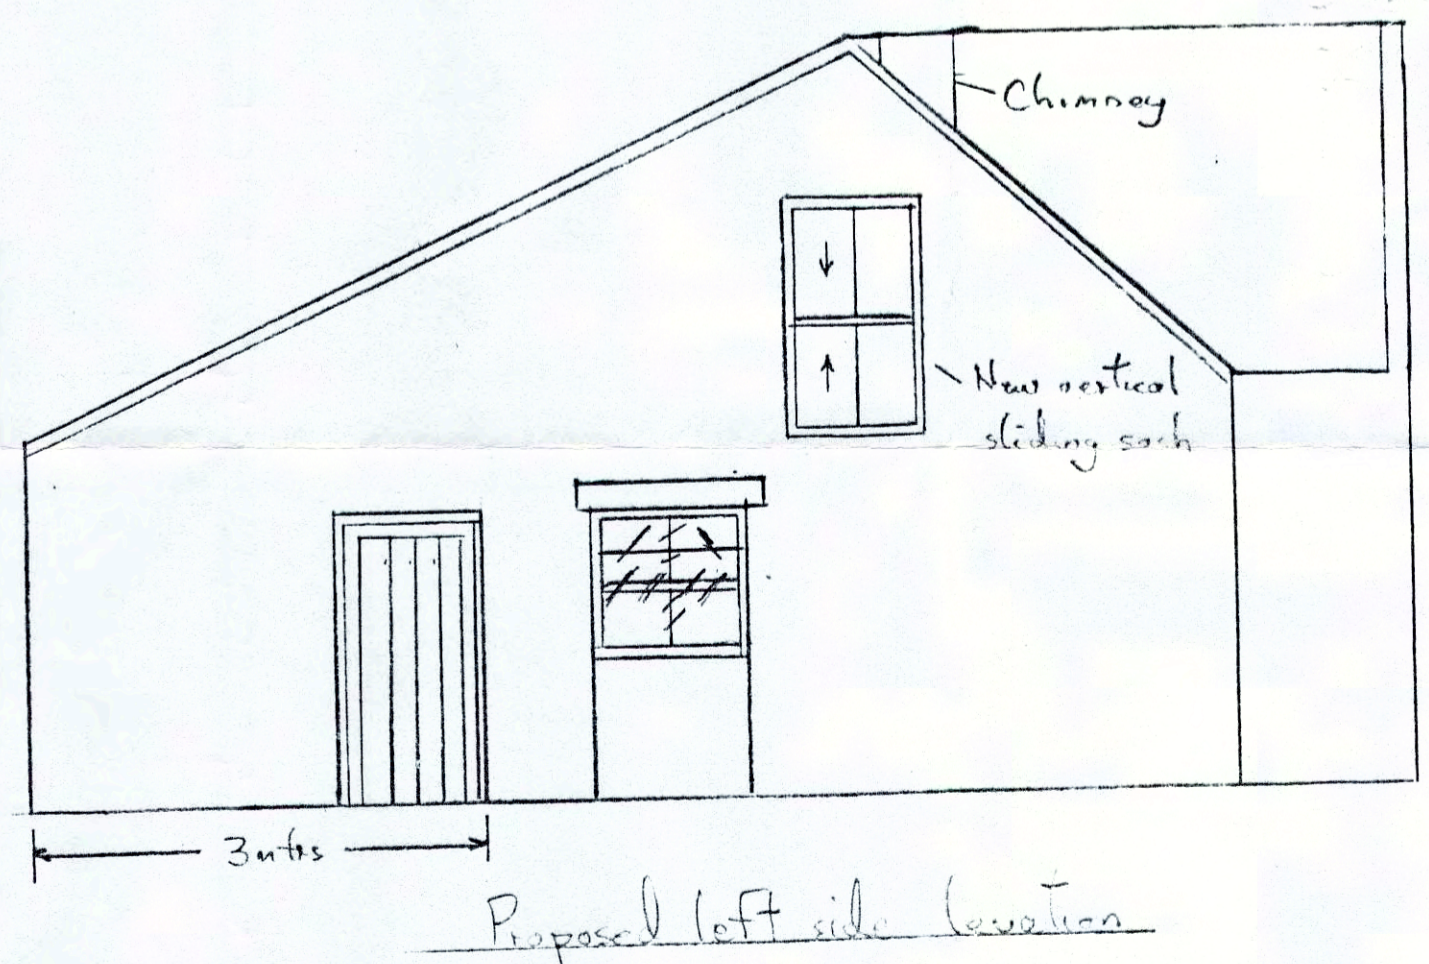 Chimney
New vertical
sliding sash
3 mtrs
Proposed left side levation